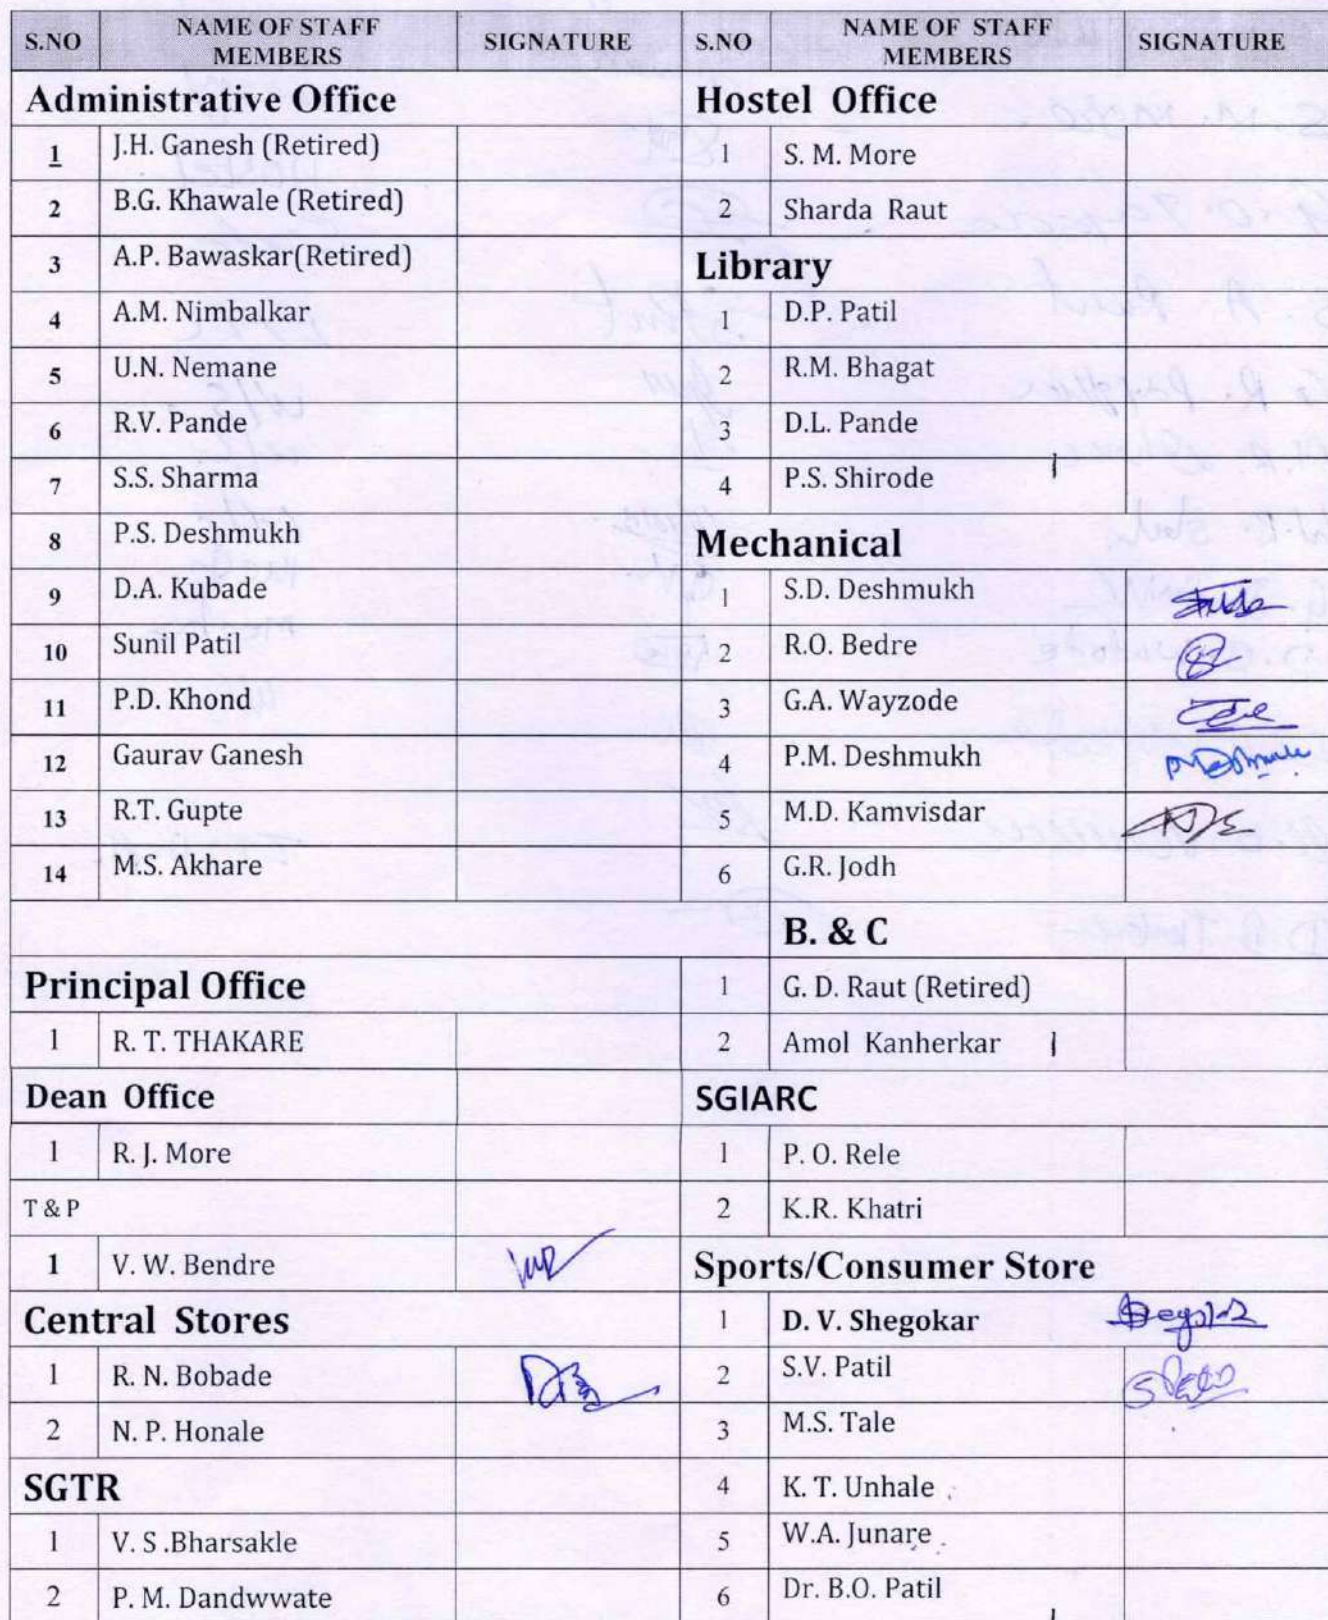 S.NO NAME OF STAFF MEMBERS SIGNATURE
Administrative Office
1 J.H. Ganesh (Retired)
2 B.G. Khawale (Retired)
3 A.P. Bawaskar(Retired)
4 A.M. Nimbalkar
5 U.N. Nemane
6 R.V. Pande
7 S.S. Sharma
8 P.S. Deshmukh
9 D.A. Kubade
10 Sunil Patil
11 P.D. Khond
12 Gaurav Ganesh
13 R.T. Gupte
14 M.S. Akhare
Principal Office
1 R. T. THAKARE
Dean Office
1 R. J. More
T & P
1 V. W. Bendre
Central Stores
1 R. N. Bobade
2 N. P. Honale
SGTR
1 V. S .Bharsakle
2 P. M. Dandwwate
S.NO NAME OF STAFF MEMBERS SIGNATURE
Hostel Office
1 S. M. More
2 Sharda Raut
Library
1 D.P. Patil
2 R.M. Bhagat
3 D.L. Pande
4 P.S. Shirode
Mechanical
1 S.D. Deshmukh
2 R.O. Bedre
3 G.A. Wayzode
4 P.M. Deshmukh
5 M.D. Kamvisdar
6 G.R. Jodh
B. & C
1 G. D. Raut (Retired)
2 Amol Kanherkar
SGIARC
1 P. O. Rele
2 K.R. Khatri
Sports/Consumer Store
1 D. V. Shegokar
2 S.V. Patil
3 M.S. Tale
4 K. T. Unhale
5 W.A. Junare
6 Dr. B.O. Patil